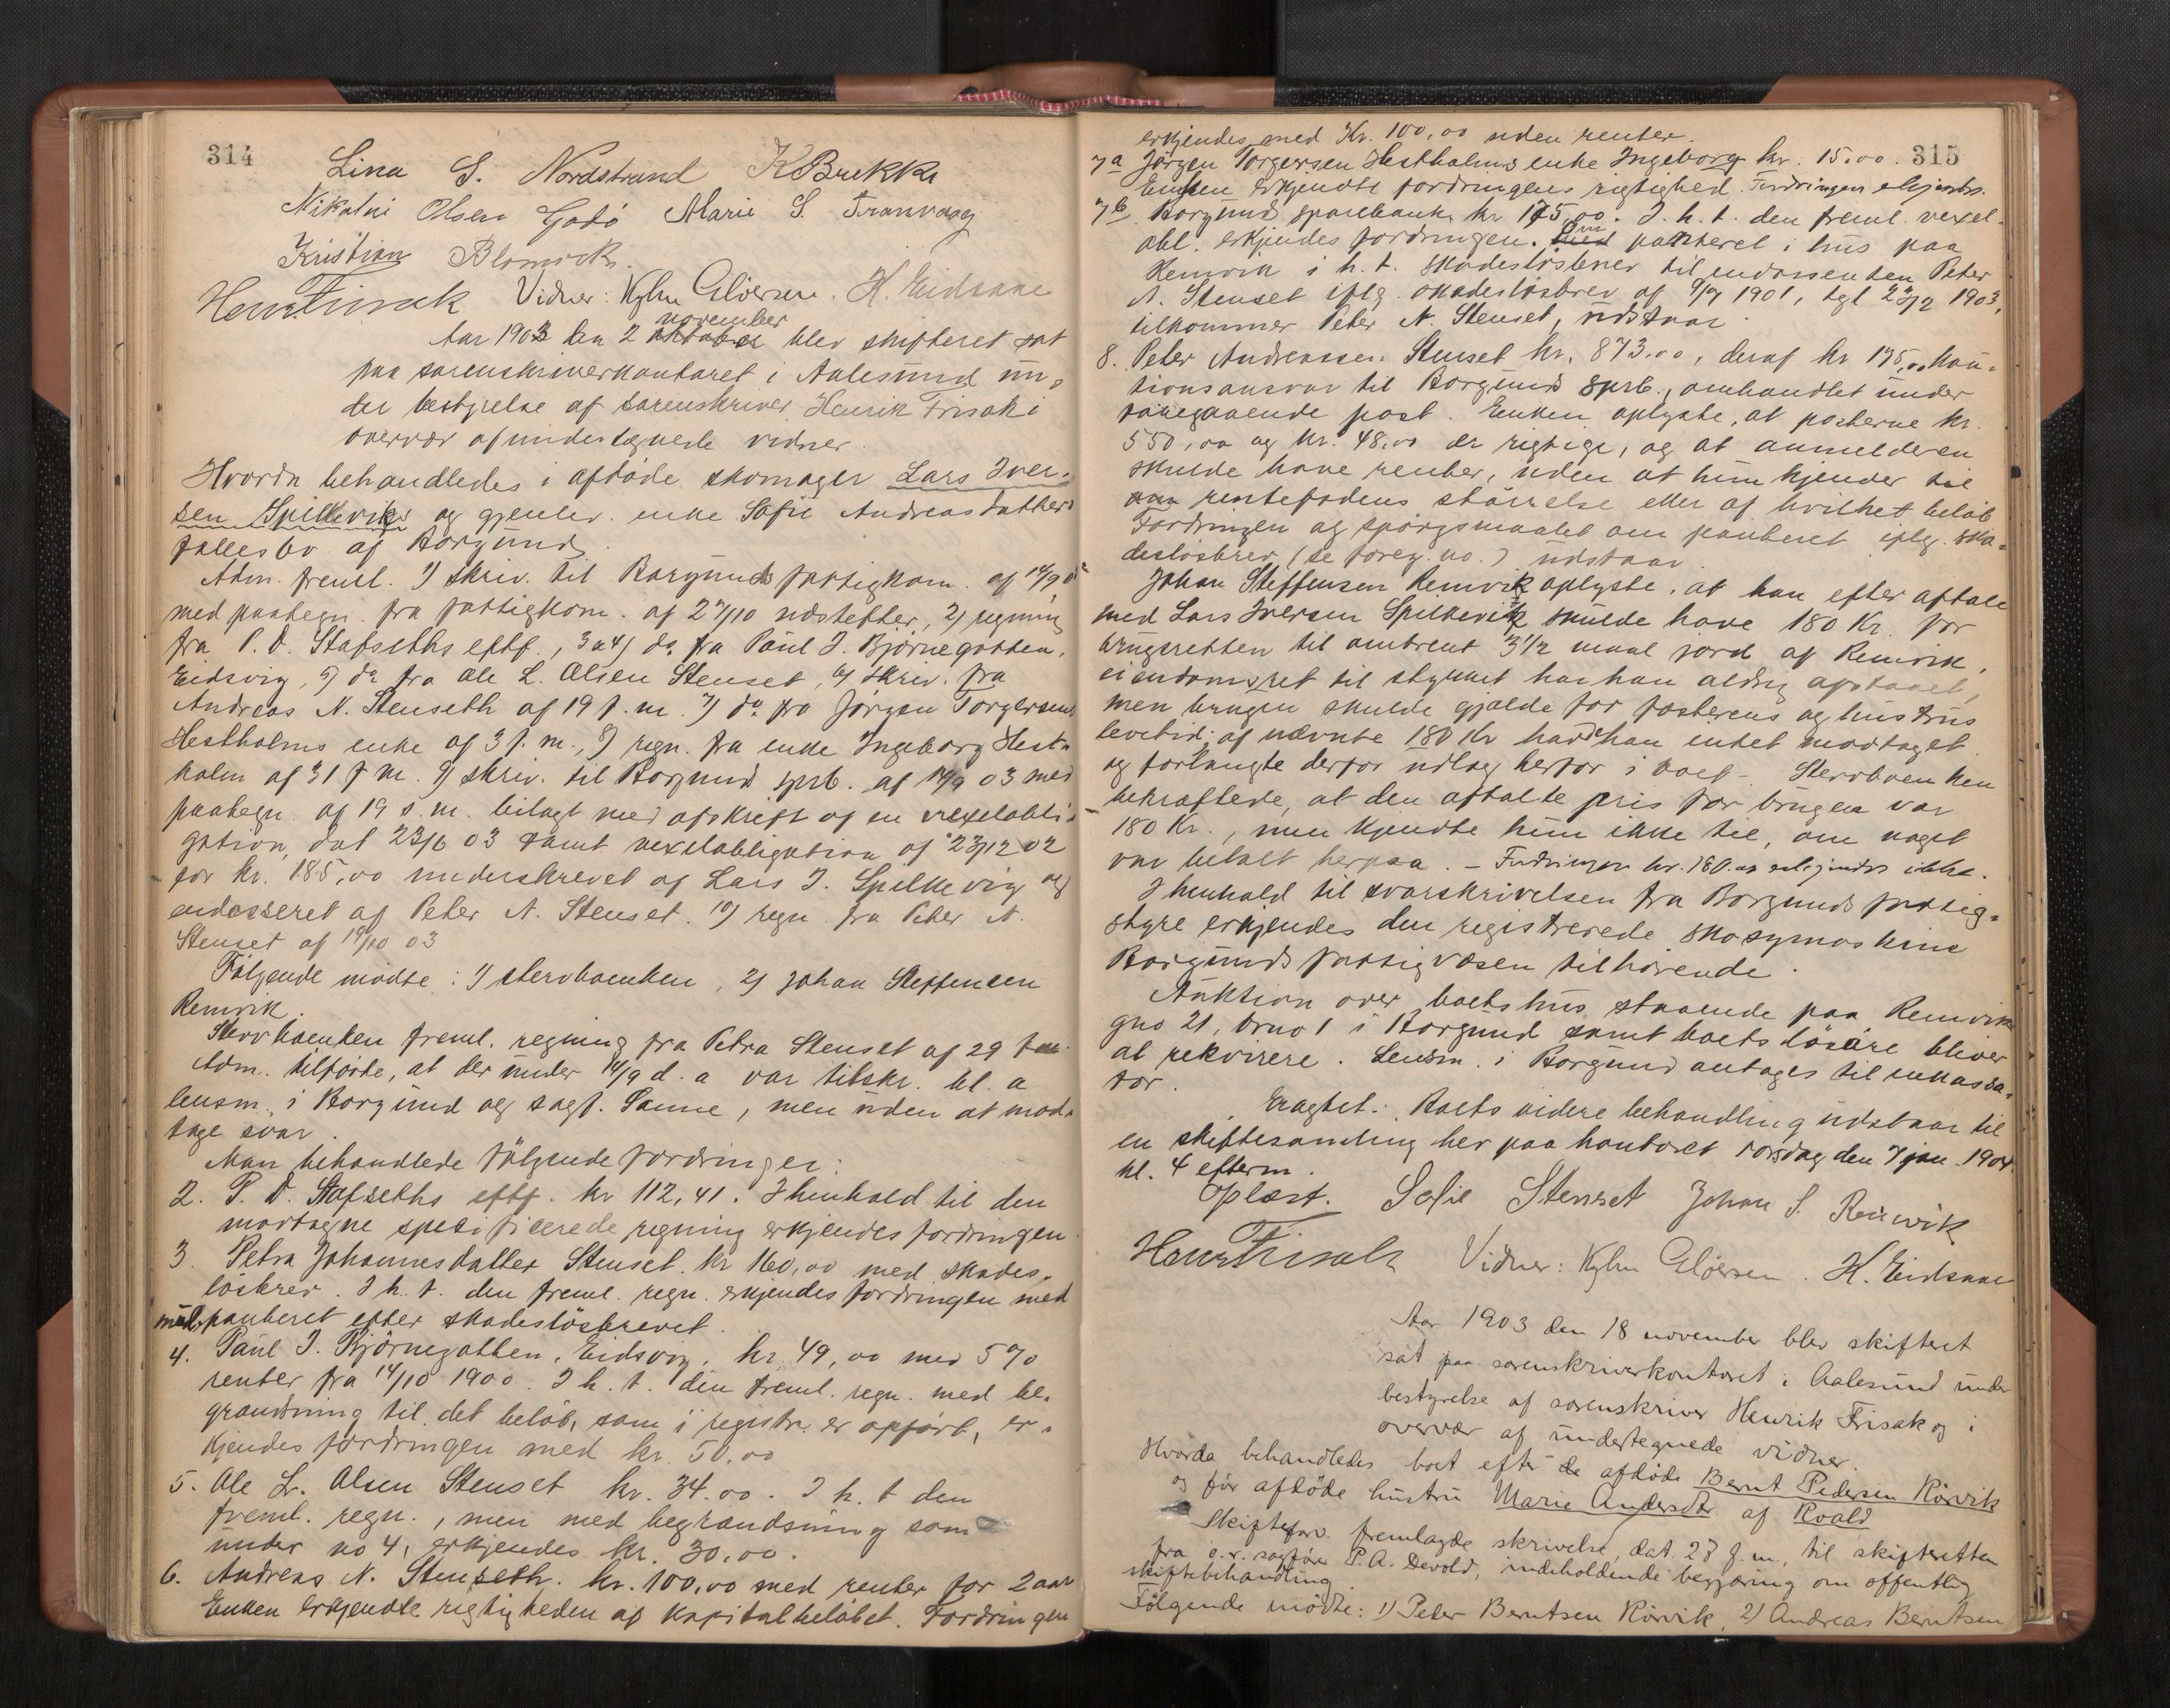 314
Lina S. Nordstrand K Brekke
Nikolai Olsen Godö Marie S. Tranvaag
Kristian Blomvik.
Henr Frisak Vidner: Kylm Glöersen. H. Eidsaae
november
Aar 1903 den 2 oktober blev skifteret sat
paa sorenskriverkontoret i Aalesund un-
der bestyrelse af sorenskriver Henrik Frisak i
overvær af undertegnede vidner.
Hvorda behandledes i afdöde skomager Lars Iver-
sen Spilkeviks og gjenlev. enke Sofie Andreasdatters
fællesbo af Borgund.
Adm. freml. 1) skriv. til Borgunds fattigkom. af 14/9 d
med paategn. fra fattigkom. af 27/10 udstefter, 2) regning
fra P. D. Stafseths eftf., 3 & 4) do fra Paul J. Björnegotten,
Eidsvig, 5) do fra Ole L. Olsen Stenset, 6) skriv. fra
Andreas N. Stenseth af 19 f. m. 7) do fra Jörgen Torgersens
Hestholms enke af 3 f. m., 8) regn. fra enke Ingeborg Hest-
holm af 31 f m. 9) skriv. til Borgund sprb. af 14/9 03 med
paategn. af 19 s. m. bilagt med afskrift af en vexelobli-
gation, dat 23/6 03 samt vexelobligation af 23/12 02
for kr. 185,00 underskrevet af Lars I. Spilkevig og
endosseret af Peter N. Stenset. 10) regn. fra Peter N.
Stenset af 19/10 03
Fölgende mödte: 1) stervboenken, 2) Johan Steffensen
Remvik.
Stervboenken freml. regning fra Petra Stenset af 29 f m.
Adm. tilförte, at der under 14/9 d. a var tilskr. bl. a
lensm. i Borgund og sagf. Sanne, men uden at mod-
tage svar.
Man behandlede fölgende fordringer:
2. P. D. Stafseths eftf. kr 112,41. I henhold til den
modtagne specificerede regning erkjendes fordringen.
3. Petra Johannesdatter Stenset. kr 160,00 med skades-
lösbrev. I h. t. den freml. regn. erkjendes fordringen med
med panteret efter skadeslösbrevet.
4. Paul J. Björnegotten, Eidsvig, kr. 49,00 med 5 %
renter fra 14/10 1900. I h. t. den freml. regn. med be-
grændsning til det belöb, som i registr. er opfört, er-
kjendes fordringen med kr. 50,00
5. Ole L. Olsen Stenset kr. 34.00. I h. t den
freml. regn., men med begrændsning som
under no 4, erkjendes kr. 30,00.
6. Andreas N. Stenseth. kr. 100,00 med renter for 2 aar
Enken erkjendte rigtigheden af kapitalbelöbet. Fordringen
315
erkjendes med Kr. 100,00 uden renter.
7a Jörgen Torgersen Hestholms enke Ingeborg kr. 15.00.
Enken erkjendte fordringens rigtighed. Fordringen erkjendes.
7b. Borgund sparebank kr 175,00. I. h. t. den freml. vexel-
obl. erkjendes fordringen. Om panteret i hus paa
Remvik i h. t. skadeslösbrev til endossenten Peter
N. Stenset iflg. skadeslösbrev af 9/7 1901, tgl 23/2 1903,
tilkommer Peter N. Stenset, udstaar.
8. Peter Andreassen Stenset kr. 873.00, deraf kr 175,00 kau-
tionsansvar til Borgund sprb., omhandlet under
foregaaende post. Enken oplyste, at posterne kr.
550,00 og kr. 48.00 er rigtige, og at anmelderen
skulde have renter, uden at hun kjender til
rentefodens störrelse eller af hvilket belöb
Fordringen og spörgsmaalet om panteret iflg. ska-
deslösbrev (se foreg. no.) udstaar.
Johan Steffensen Remvik oplyste, at han efter aftale
med Lars Iversen Spilkevik skulde have 180 Kr. for
brugsretten til omtrent 3 1/2 maal jord af Remvik,
eiendomsret til stykket har han aldrig afstaaet,
men brugen skulde gjælde for fosterens og hustrus
levetid; af nævnte 180 Kr havde han intet modtaget
og forlangte derfor udlæg herfor i boet. - Stervboenken
bekræftede, at den aftalte pris for brugen var
180 Kr., men kjendte hun ikke til, om noget
var betalt herpaa. - Fordringen kr. 180.00 erkjendes ikke.
I henhold til svarskrivelsen fra Borgunds fattig-
styre erkjendes den registrerede skosymaskine
Borgunds fattigvæsen tilhörende.
Auktion over boets hus staaende paa Remvik
gno 21, brno 1 i Borgund samt boets lösöre bliver
at rekvirere. Lensm. i Borgund antages til inkassa-
tor.
Eragtet: Boets videre behandling udstaar til
en skiftesamling her paa kontoret torsdag den 7 jan. 1904
kl. 4 efterm.
Oplæst. Sofie Stenset Johan S. Remvik
Henr Frisak Vidner: Kylm Glöersen. H. Eidsaae
Aar 1903 den 18 november blev skifteret
sat paa sorenskriverkontoret i Aalesund under
bestyrelse af sorenskriver Henrik Frisak og i
overvær af undertegnede vidner.
Hvorda behandledes boet efter de afdöde Bernt Pedersen Rörvik
og för afdöde hustru Marie Andersdtr af Roald
Skifteforv. fremlagde skrivelse, dat. 28 f. m., til skifteretten
fra o.r. sagförer P. A. Devold, indeholdende begjæring om offentlig
skiftebehandling.
Fölgende mödte: 1) Peter Berntsen Rörvik, 2) Andreas Berntsen